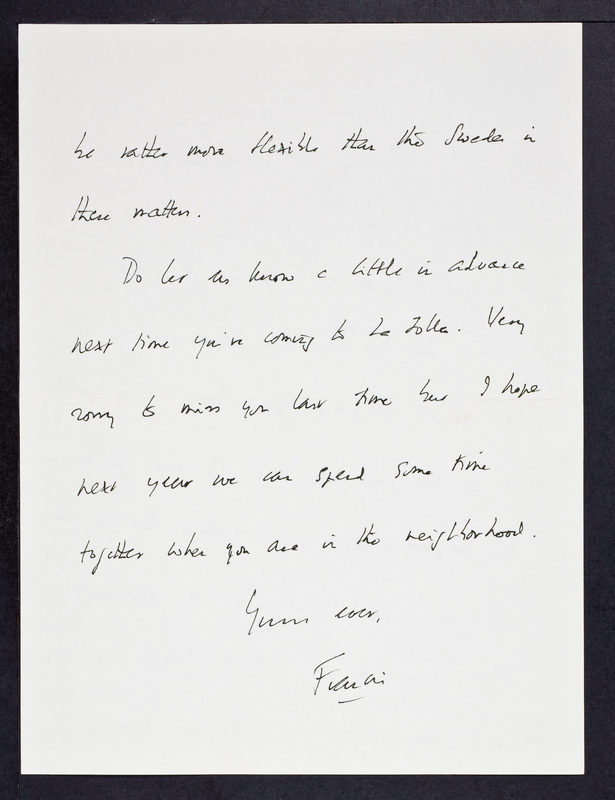 be rather more flexible than the Swedes in
these matters.
Do let us know a little in advance
next time you're coming to La Jolla. Very
sorry to miss you last time but I hope
next year we can spend some time
together when you are in the neighborhood.
Yours ever,
Francis